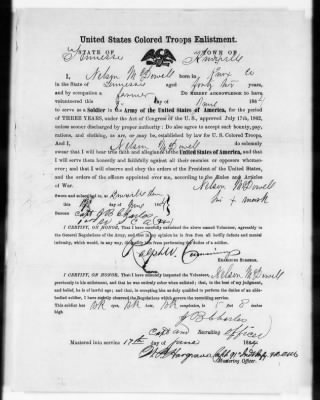 United States Colored Troops Enlistment.
STATE OF TOWN OF
Tennessee Knoxville
I, Nelson McDowell born in Knox Co
in the State of Tennessee aged forty six years,
and by occupation a farmer DO HEREBY ACKNOWLEDGE to have
volunteered this day of June 1864
to serve as a Soldier in the Army of the United States of America, for the period
of THREE YEARS, under the Act of Congress of the U. S., approved July 17th, 1862,
unless sooner discharged by proper authority: Do also agree to accept such bounty, pay,
rations, and clothing, as are, or may be, established by law for U. S. Colored Troops.
And I, Nelson McDowell do solemnly
swear that I will bear true faith and allegiance to the United States of America, and that
I will serve them honestly and faithfully against all their enemies or opposers whomso-
ever; and that I will observe and obey the orders of the President of the United States,
and the orders of the officers appointed over me, according to the Rules and Articles
of War.
Nelson McDowell
his x mark
Sworn and subscribed to, at
this day of June 1864
BEFORE Capt J B Charles
I CERTIFY, ON HONOR, That I have carefully examined the above named Volunteer, agreeably
to the General Regulations of the Army, and that in my opinion he is free from all bodily defects and mental
infirmity, which would in any way, disqualify him from performing the duties of a soldier.
Ralph W. Cummings
EXAMINING SURGEON.
I CERTIFY, ON HONOR, That I have minutely inspected the Volunteer, Nelson McDowell
previously to his enlistment, and that he was entirely sober when enlisted; that, to the best of my judgment,
and belief, he is of lawful age; and that, in accepting him as duly qualified to perform the duties of an able-
bodied soldier, I have strictly observed the Regulations which govern the recruiting service.
This soldier has blk eyes, blk hair, blk complexion, is 5 feet 8 inches
high.
J B Charles
Capt and Recruiting Officer
Mustered into service 17th day of June 1864
Hargrave
Mustering Officer.